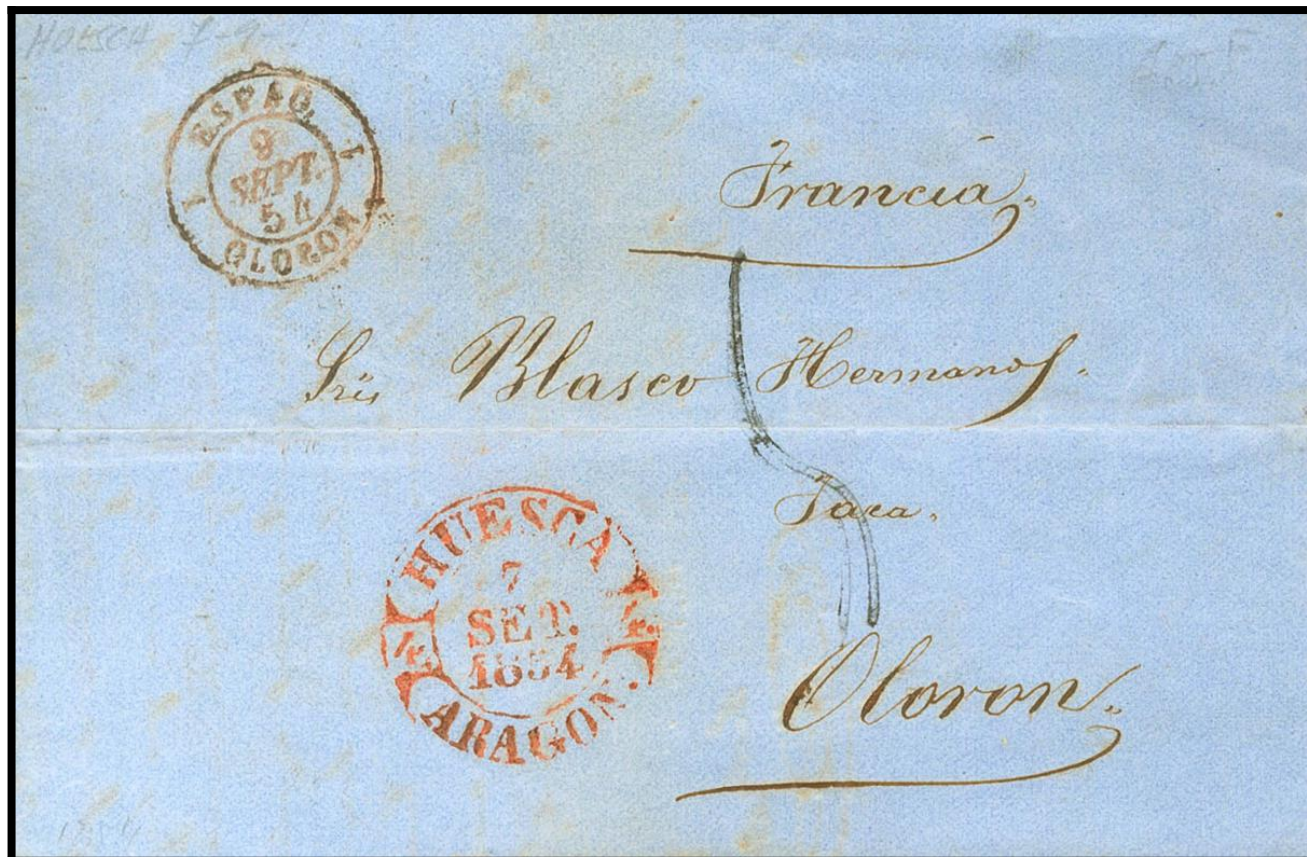 HUESCA 7-9-
1 ESPAG. 1
9
SEPT.
54
OLORON
Francia.
Sres Blasco Hermanos.
HUESCA
7
SET.
1854
ARAGON.
Jaca.
Oloron.